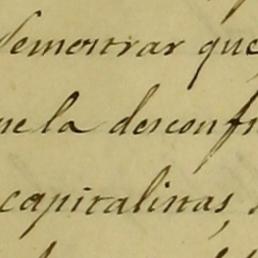 demostrar que
que la desconfi
capitalistas,